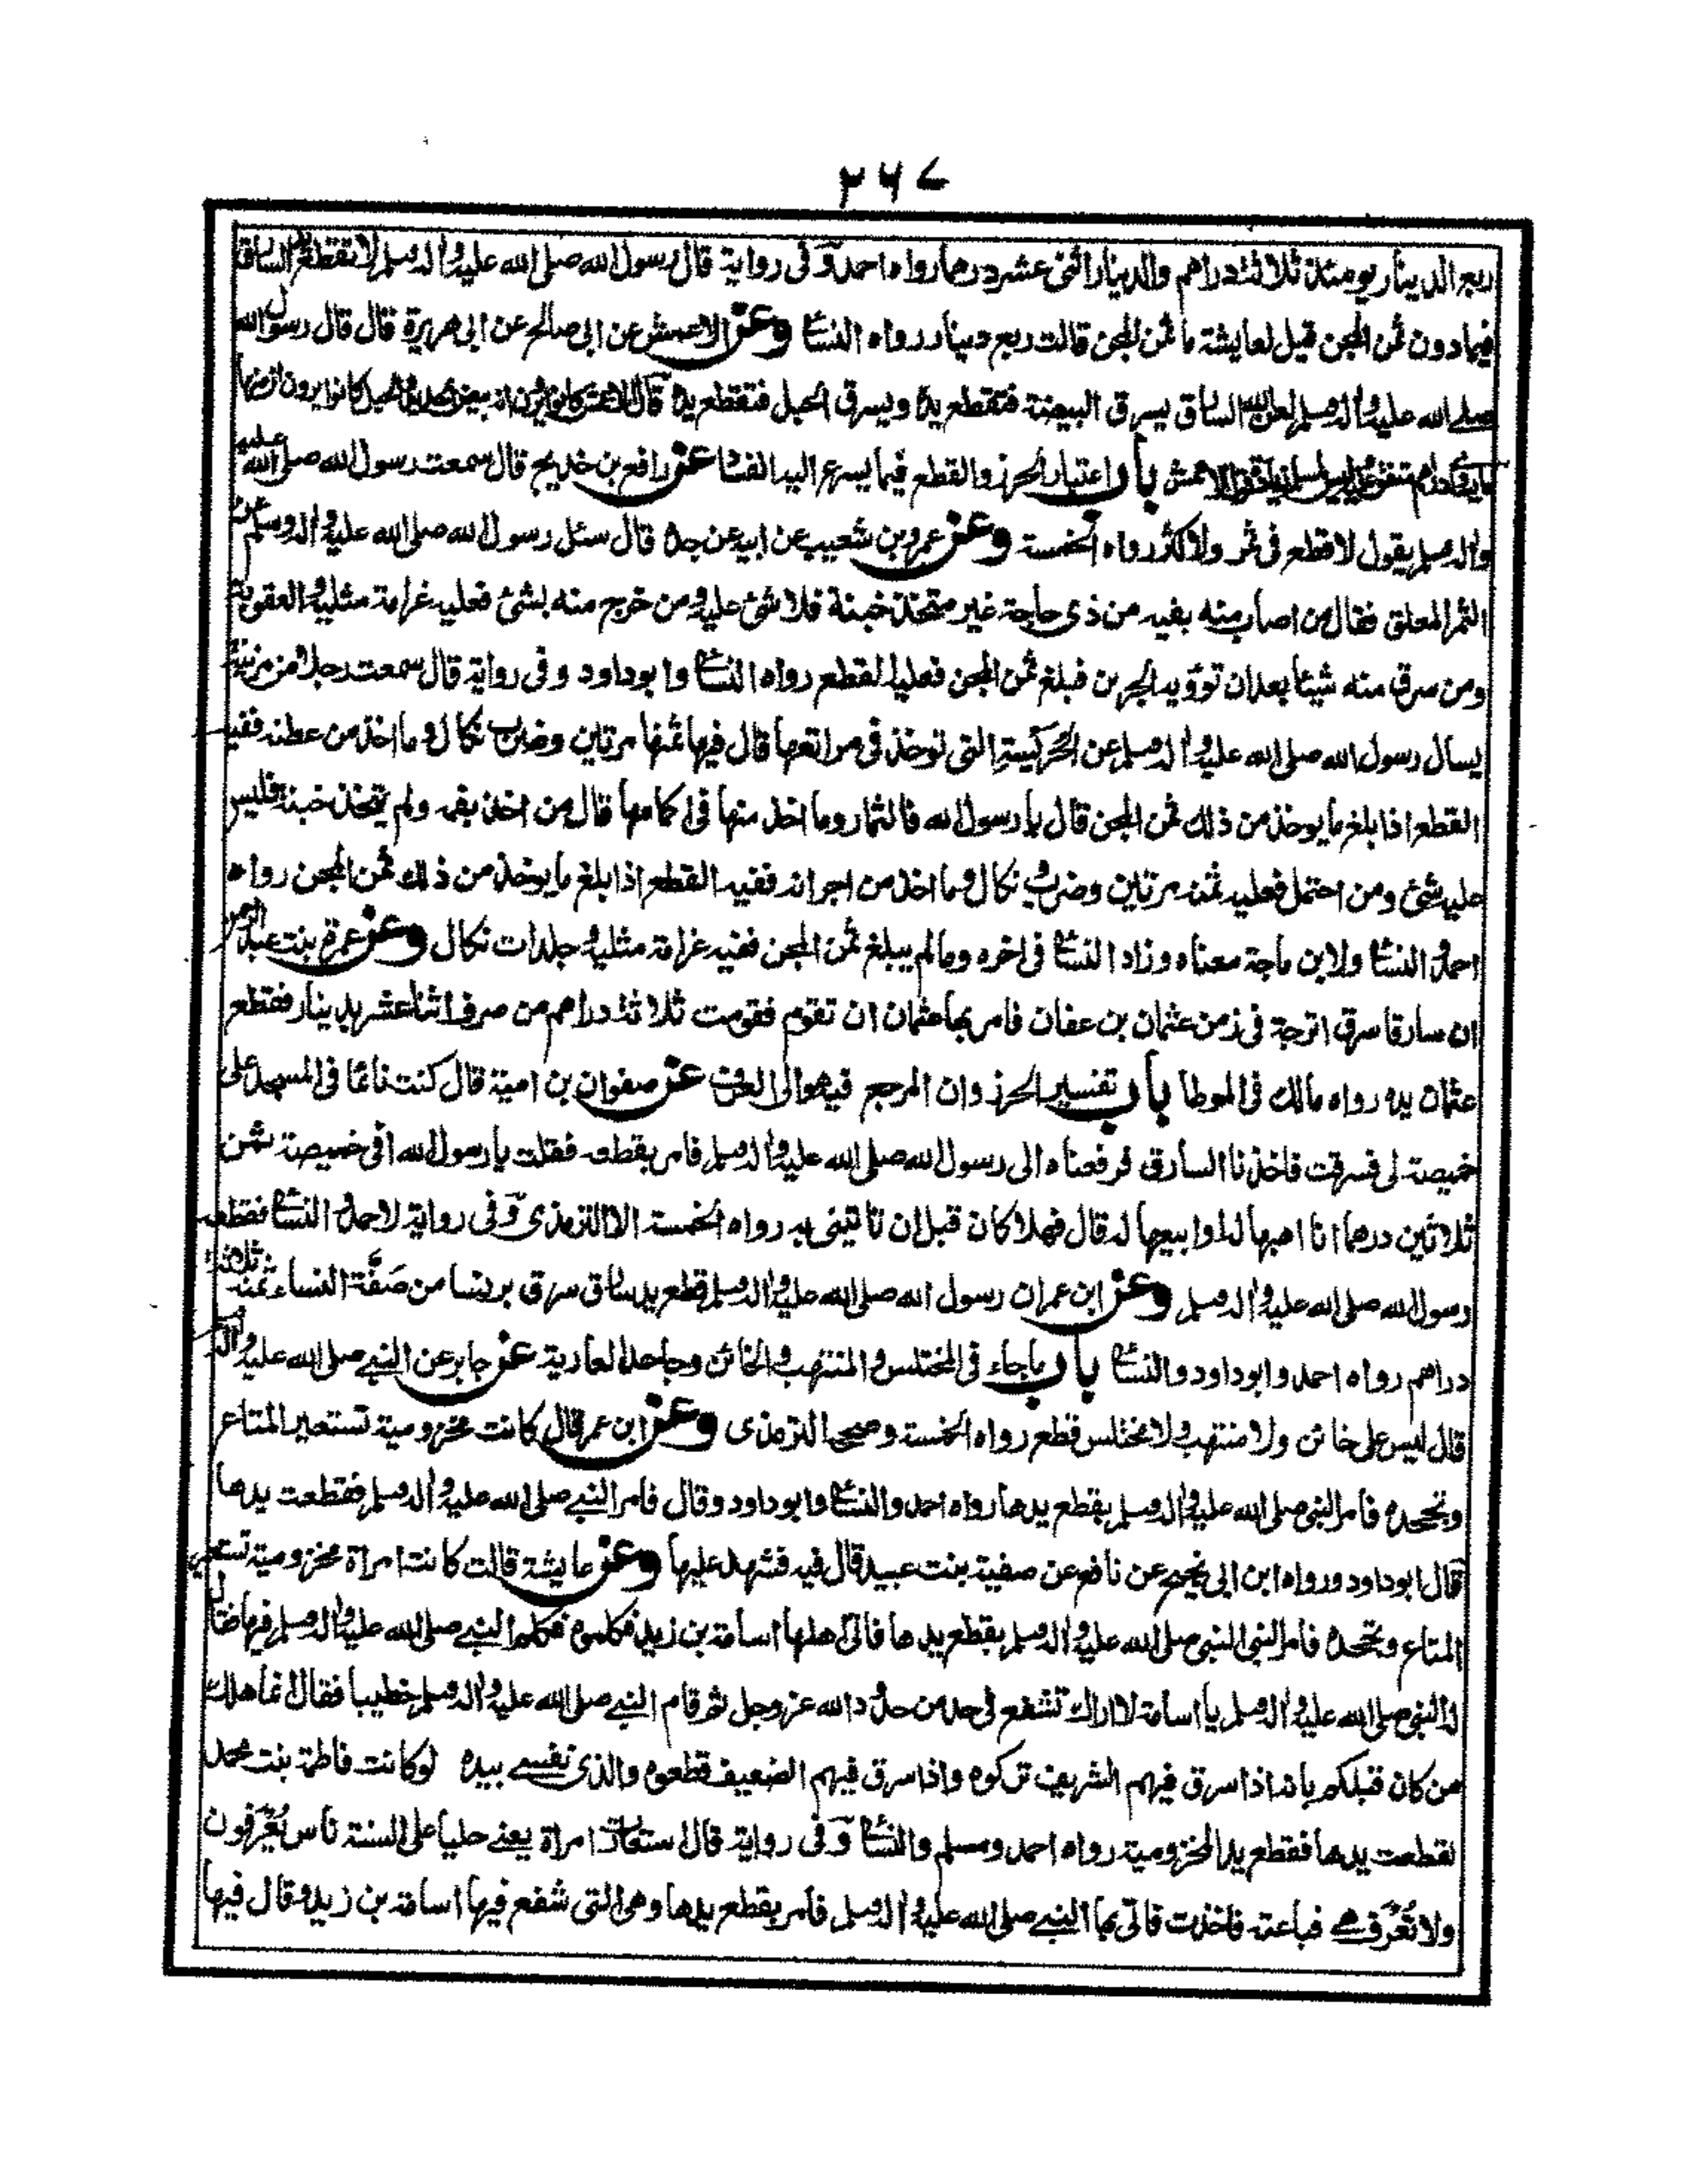 ۲۶۷
ربع الدينار يومئذ ثلاثة دراهم والدينار اثنى عشر درهما رواه احمد وفى رواية قال رسول الله صلى الله عليه واله وسلم لا تقطع يد السارق
فيما دون ثمن المجن قيل لعايشة ما ثمن المجن قالت ربع دينار رواه النسائى وعن الاعمش عن ابى صالح عن ابى هريرة قال قال رسول الله
صلى الله عليه واله وسلم لعن الله السارق يسرق البيضة فتقطع يده ويسرق الحبل فتقطع يده قال الاعمش كانوا يرون انه بيض الحديد والحبل كانوا يرون ان منها
ما يساوى دراهم متفق عليه وليس لمسلم فيه زيادة قول الاعمش باب اعتبار الحرز والقطع فيما يسرع اليه الفساد عن رافع بن خديج قال سمعت رسول الله صلى الله عليه
واله وسلم يقول لا قطع فى ثمر ولا كثر رواه الخمسة وعن عمرو بن شعيب عن ابيه عن جده قال سئل رسول الله صلى الله عليه واله وسلم عن
الثمر المعلق فقال من اصاب منه بفيه من ذى حاجة غير متخذ خبنة فلا شئ عليه ومن خرج منه بشئ فعليه غرامة مثليه والعقوبة
ومن سرق منه شيئا بعد ان تؤويه الجرين فبلغ ثمن المجن فعليه القطع رواه النسائى وابو داود وفى رواية قال سمعت رجلا من مزينة
يسأل رسول الله صلى الله عليه واله وسلم عن الحَرِيسَةِ التى توخذ فى مراتعها قال فيها ثمنها مرتين وضرب نكال وما اخذ من عطنه ففيه
القطع اذا بلغ ما يوخذ من ذلك ثمن المجن قال يا رسول الله فالثمار وما اخذ منها فى اكمامها قال من اخذ بفمه ولم يتخذ خبنة فليس
عليه شئ ومن احتمل فعليه ثمنه مرتين وضرب نكال وما اخذ من اجرانه ففيه القطع اذا بلغ ما يوخذ من ذلك ثمن المجن رواه
احمد والنسائى ولابن ماجة معناه وزاد النسائى فى اخره وما لم يبلغ ثمن المجن ففيه غرامة مثليه وجلدات نكال وعن عمرة بنت عبد الرحمن
ان سارقا سرق اترجة فى زمن عثمان بن عفان فامر بها عثمان ان تقوم فقومت ثلاثة دراهم من صرف اثنا عشر بدينار فقطع
عثمان يده رواه مالك فى الموطا باب تفسير الحرز وان المرجع فيه الى العرف عن صفوان بن امية قال كنت نائما فى المسجد على
خميصة لى فسرقت فاخذنا السارق فرفعناه الى رسول الله صلى الله عليه واله وسلم فامر بقطعه فقلت يا رسول الله افى خميصة ثمن
ثلاثين درهما انا اهبها له او ابيعها له قال فهلا كان قبل ان تاتينى به رواه الخمسة الا الترمذى وفى رواية لاحمد والنسائى فقطعه
رسول الله صلى الله عليه واله وسلم وعن ابن عمر ان رسول الله صلى الله عليه واله وسلم قطع يد سارق سرق برنسا من صَفَّة النساء ثمنه ثلاثة
دراهم رواه احمد وابو داود والنسائى باب ما جاء فى المختلس والمنتهب والخائن وجاحد العارية عن جابر عن النبى صلى الله عليه واله وسلم
قال ليس على خائن ولا منتهب ولا مختلس قطع رواه الخمسة وصححه الترمذى وعن ابن عمر قال كانت مخزومية تستعير المتاع
وتجحده فامر النبى صلى الله عليه واله وسلم بقطع يدها رواه احمد والنسائى وابو داود وقال فامر النبى صلى الله عليه واله وسلم فقطعت يدها
قال ابو داود ورواه ابن ابى نجيح عن نافع عن صفية بنت عبيد قال فيه فشهد عليها وعن عايشة قالت كانت امراة مخزومية تستعير
المتاع وتجحده فامر النبى النبى صلى الله عليه واله وسلم بقطع يدها فاتى اهلها اسامة بن زيد فكلموه فكلم النبى صلى الله عليه واله وسلم فيها فقال
له النبى صلى الله عليه واله وسلم يا اسامة لا اراك تشفع فى حد من حدود الله عز وجل ثم قام النبى صلى الله عليه واله وسلم خطيبا فقال انما هلك
من كان قبلكم بانه اذا سرق فيهم الشريف تركوه واذا سرق فيهم الضعيف قطعوه والذى نفسى بيده لو كانت فاطمة بنت محمد
لقطعت يدها فقطع يد المخزومية رواه احمد ومسلم والنسائى وفى رواية قال استعارت امراة يعنى حليا على السنة ناس يُعْرَفون
ولا تُعْرَف هى فباعته فاخذت فاتى بها النبى صلى الله عليه واله وسلم فامر بقطع يدها وهى التى شفع فيها اسامة بن زيد وقال فيها